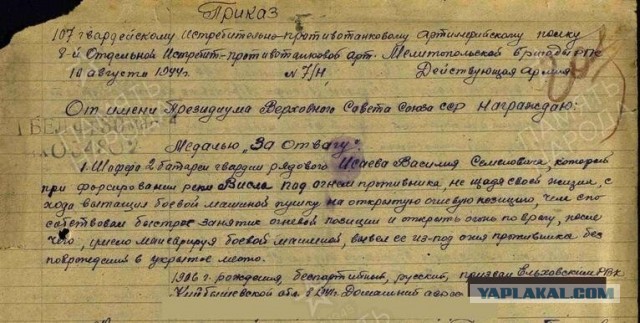 Приказ
107 гвардейскому Истребительно-противотанковому артиллерийскому полку
8-й Отдельной Истребит-противотанковой арт. Мелитопольской бригады РГК
10 августа 1944г. N 7/Н Действующая армия
От имени Президиума Верховного Совета Союза ССР Награждаю:
Медалью "За Отвагу":
1. Шофера 2 батареи гвардии рядового Исаева Василия Семеновича, который
при форсировании реки Висла под огнем противника, не щадя своей жизни, с
хода вытащил боевой машиной пушку на открытую огневую позицию чем спо-
собствовал быстрое занятие огневой позиции и открыть огонь по врагу, после
чего, умело маневрируя боевой машиной, вывел ее из-под огня противника без
повреждений в укрытое место.
1906 г. рождения, беспартийный, русский, призван Елховским РВК
Куйбышевской обл. Домашний адрес
YAPLAKAL.COM